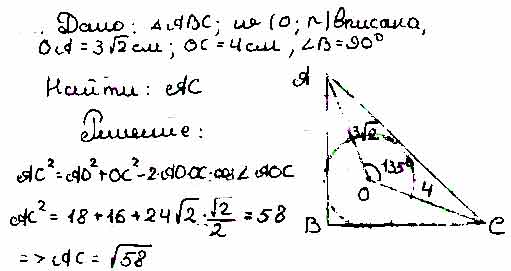 Дано: △ABC; ω (O; r) вписана,
OA = 3√2 см; OC = 4 см, ∠B = 90°
Найти: AC
Решение:
AC² = AO² + OC² - 2·AO·OC·cos∠AOC
AC² = 18 + 16 + 24√2 · √2/2 = 58
=> AC = √58
A
3√2
135°
O
4
B
C